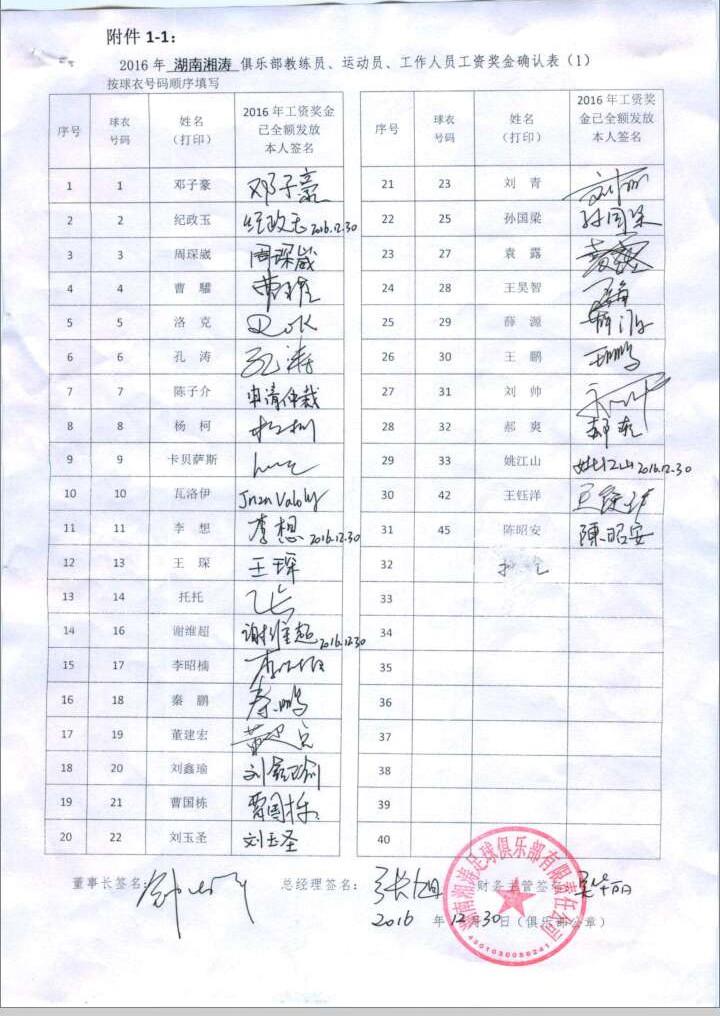 附件 1-1：
2016 年 湖南湘涛 俱乐部教练员、运动员、工作人员工资奖金确认表（1）
按球衣号码顺序填写
序号 球衣号码 姓名（打印） 2016 年工资奖金已全额发放本人签名
1 1 邓子豪 邓子豪
2 2 纪政玉 纪政玉 2016.12.30
3 3 周琛崴 周琛崴
4 4 曹 驩 曹
5 5 洛 克 RoK
6 6 孔 涛 孔涛
7 7 陈子介 申请仲裁
8 8 杨 柯 杨柯
9 9 卡贝萨斯
10 10 瓦洛伊
11 11 李 想 李想 2016.12.30
12 13 王 琛 王琛
13 14 托托
14 16 谢维超 谢维超 2016.12.30
15 17 李昭楠
16 18 秦 鹏 秦鹏
17 19 董建宏 董
18 20 刘鑫瑜 刘鑫瑜
19 21 曹国栋 曹国栋
20 22 刘玉圣 刘玉圣
序号 球衣号码 姓名（打印） 2016 年工资奖金已全额发放本人签名
21 23 刘 青
22 25 孙国梁 孙国梁
23 27 袁 露 袁露
24 28 王昊智
25 29 薛 源
26 30 王 鹏 王鹏
27 31 刘 帅
28 32 郝 爽 郝爽
29 33 姚江山 姚江山 2016.12.30
30 42 王钰洋
31 45 陈昭安 陳昭安
32
33
34
35
36
37
38
39
40
董事长签名： 总经理签名： 张旭 财务主管签名：
2016 年 12 月 30 日（俱乐部公章）
湖南湘涛足球俱乐部有限责任公司